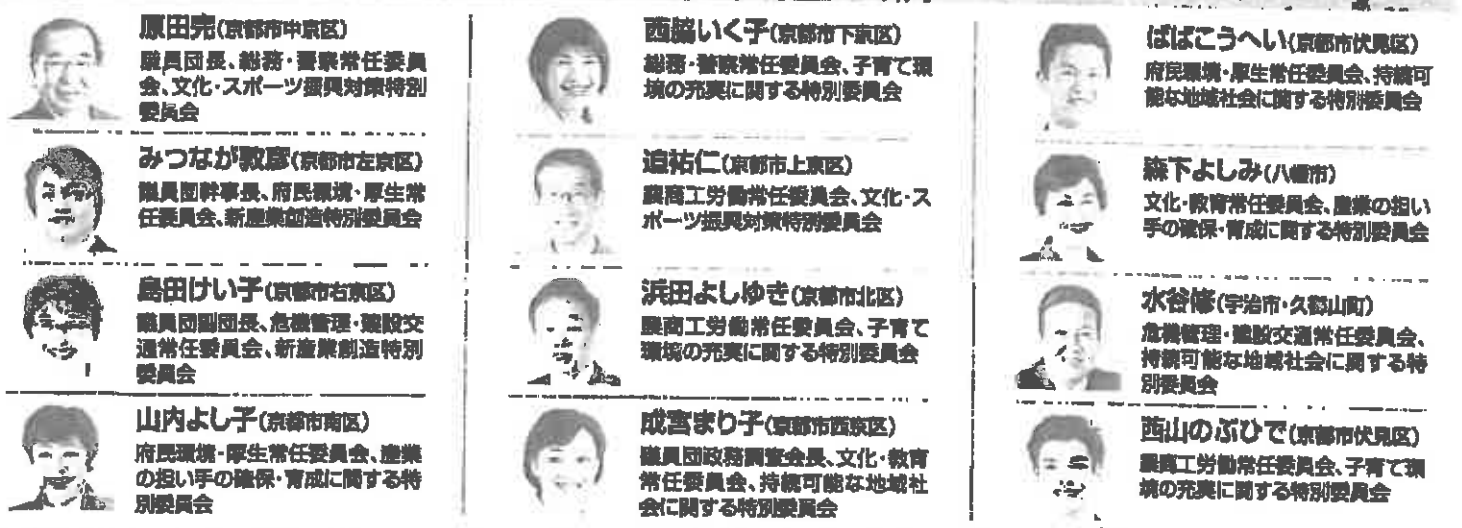 原田完(京都市中京区)
議員団長、総務・警察常任委員
会、文化・スポーツ振興対策特別
委員会
みつなが敦彦(京都市左京区)
議員団幹事長、府民環境・厚生常
任委員会、新産業創造特別委員会
島田けい子(京都市右京区)
議員団副団長、危機管理・建設交
通常任委員会、新産業創造特別
委員会
山内よし子(京都市南区)
府民環境・厚生常任委員会、産業
の担い手の確保・育成に関する特
別委員会
西脇いく子(京都市下京区)
総務・警察常任委員会、子育て環
境の充実に関する特別委員会
迫祐仁(京都市上京区)
農商工労働常任委員会、文化・ス
ポーツ振興対策特別委員会
浜田よしゆき(京都市北区)
農商工労働常任委員会、子育て
環境の充実に関する特別委員会
成宮まり子(京都市西京区)
議員団政務調査会長、文化・教育
常任委員会、持続可能な地域社
会に関する特別委員会
ばばこうへい(京都市伏見区)
府民環境・厚生常任委員会、持続可
能な地域社会に関する特別委員会
森下よしみ(八幡市)
文化・教育常任委員会、産業の担い
手の確保・育成に関する特別委員会
水谷修(宇治市・久御山町)
危機管理・建設交通常任委員会、
持続可能な地域社会に関する特
別委員会
西山のぶひで(京都市伏見区)
農商工労働常任委員会、子育て環
境の充実に関する特別委員会